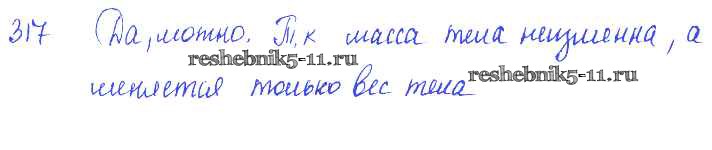 317 Да, можно. Т.к масса тела неизменна, а
reshebnik5-11.ru
reshebnik5-11.ru
меняется только вес тела